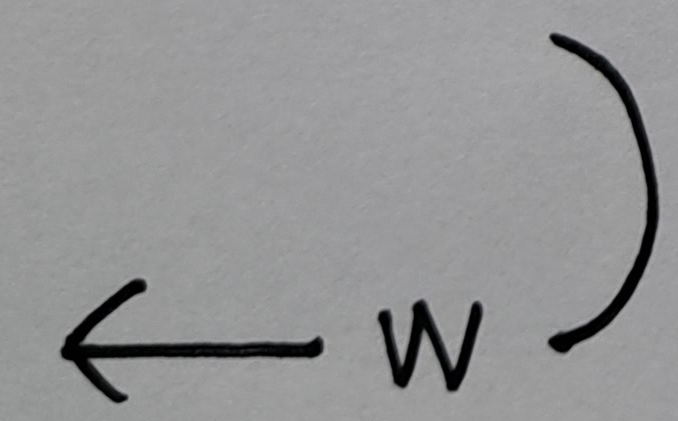 ← W )